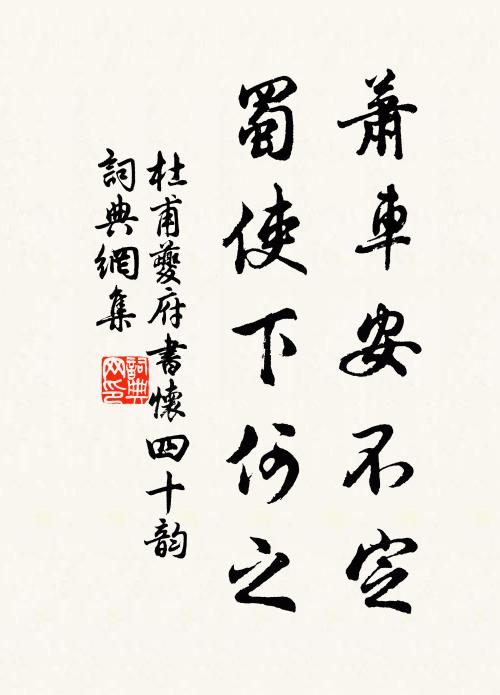 蕭車安不定
蜀使下何之
杜甫夔府書懷四十韵
詞典網集
詞典
网印